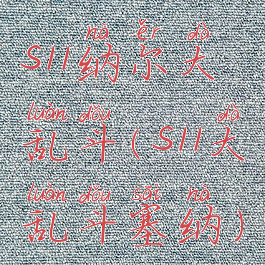 nà ěr dà
S11纳尔大
luàn dòu dà
乱斗(S11大
luàn dòu sāi nà
乱斗塞纳)